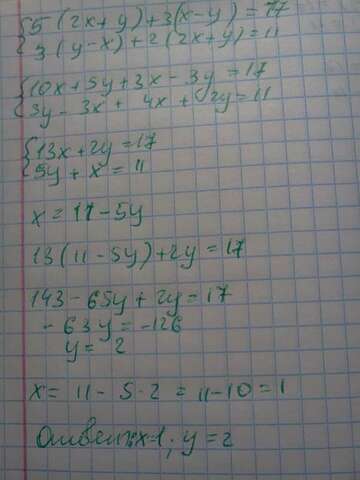 {5(2x+y)+3(x-y)=17
3(y-x)+2(2x+y)=11
{10x+5y+3x-3y=17
3y-3x+4x+2y=11
{13x+2y=17
5y+x=11
x=11-5y
13(11-5y)+2y=17
143-65y+2y=17
-63y=-126
y=2
x=11-5·2=11-10=1
Ответ: x=1; y=2